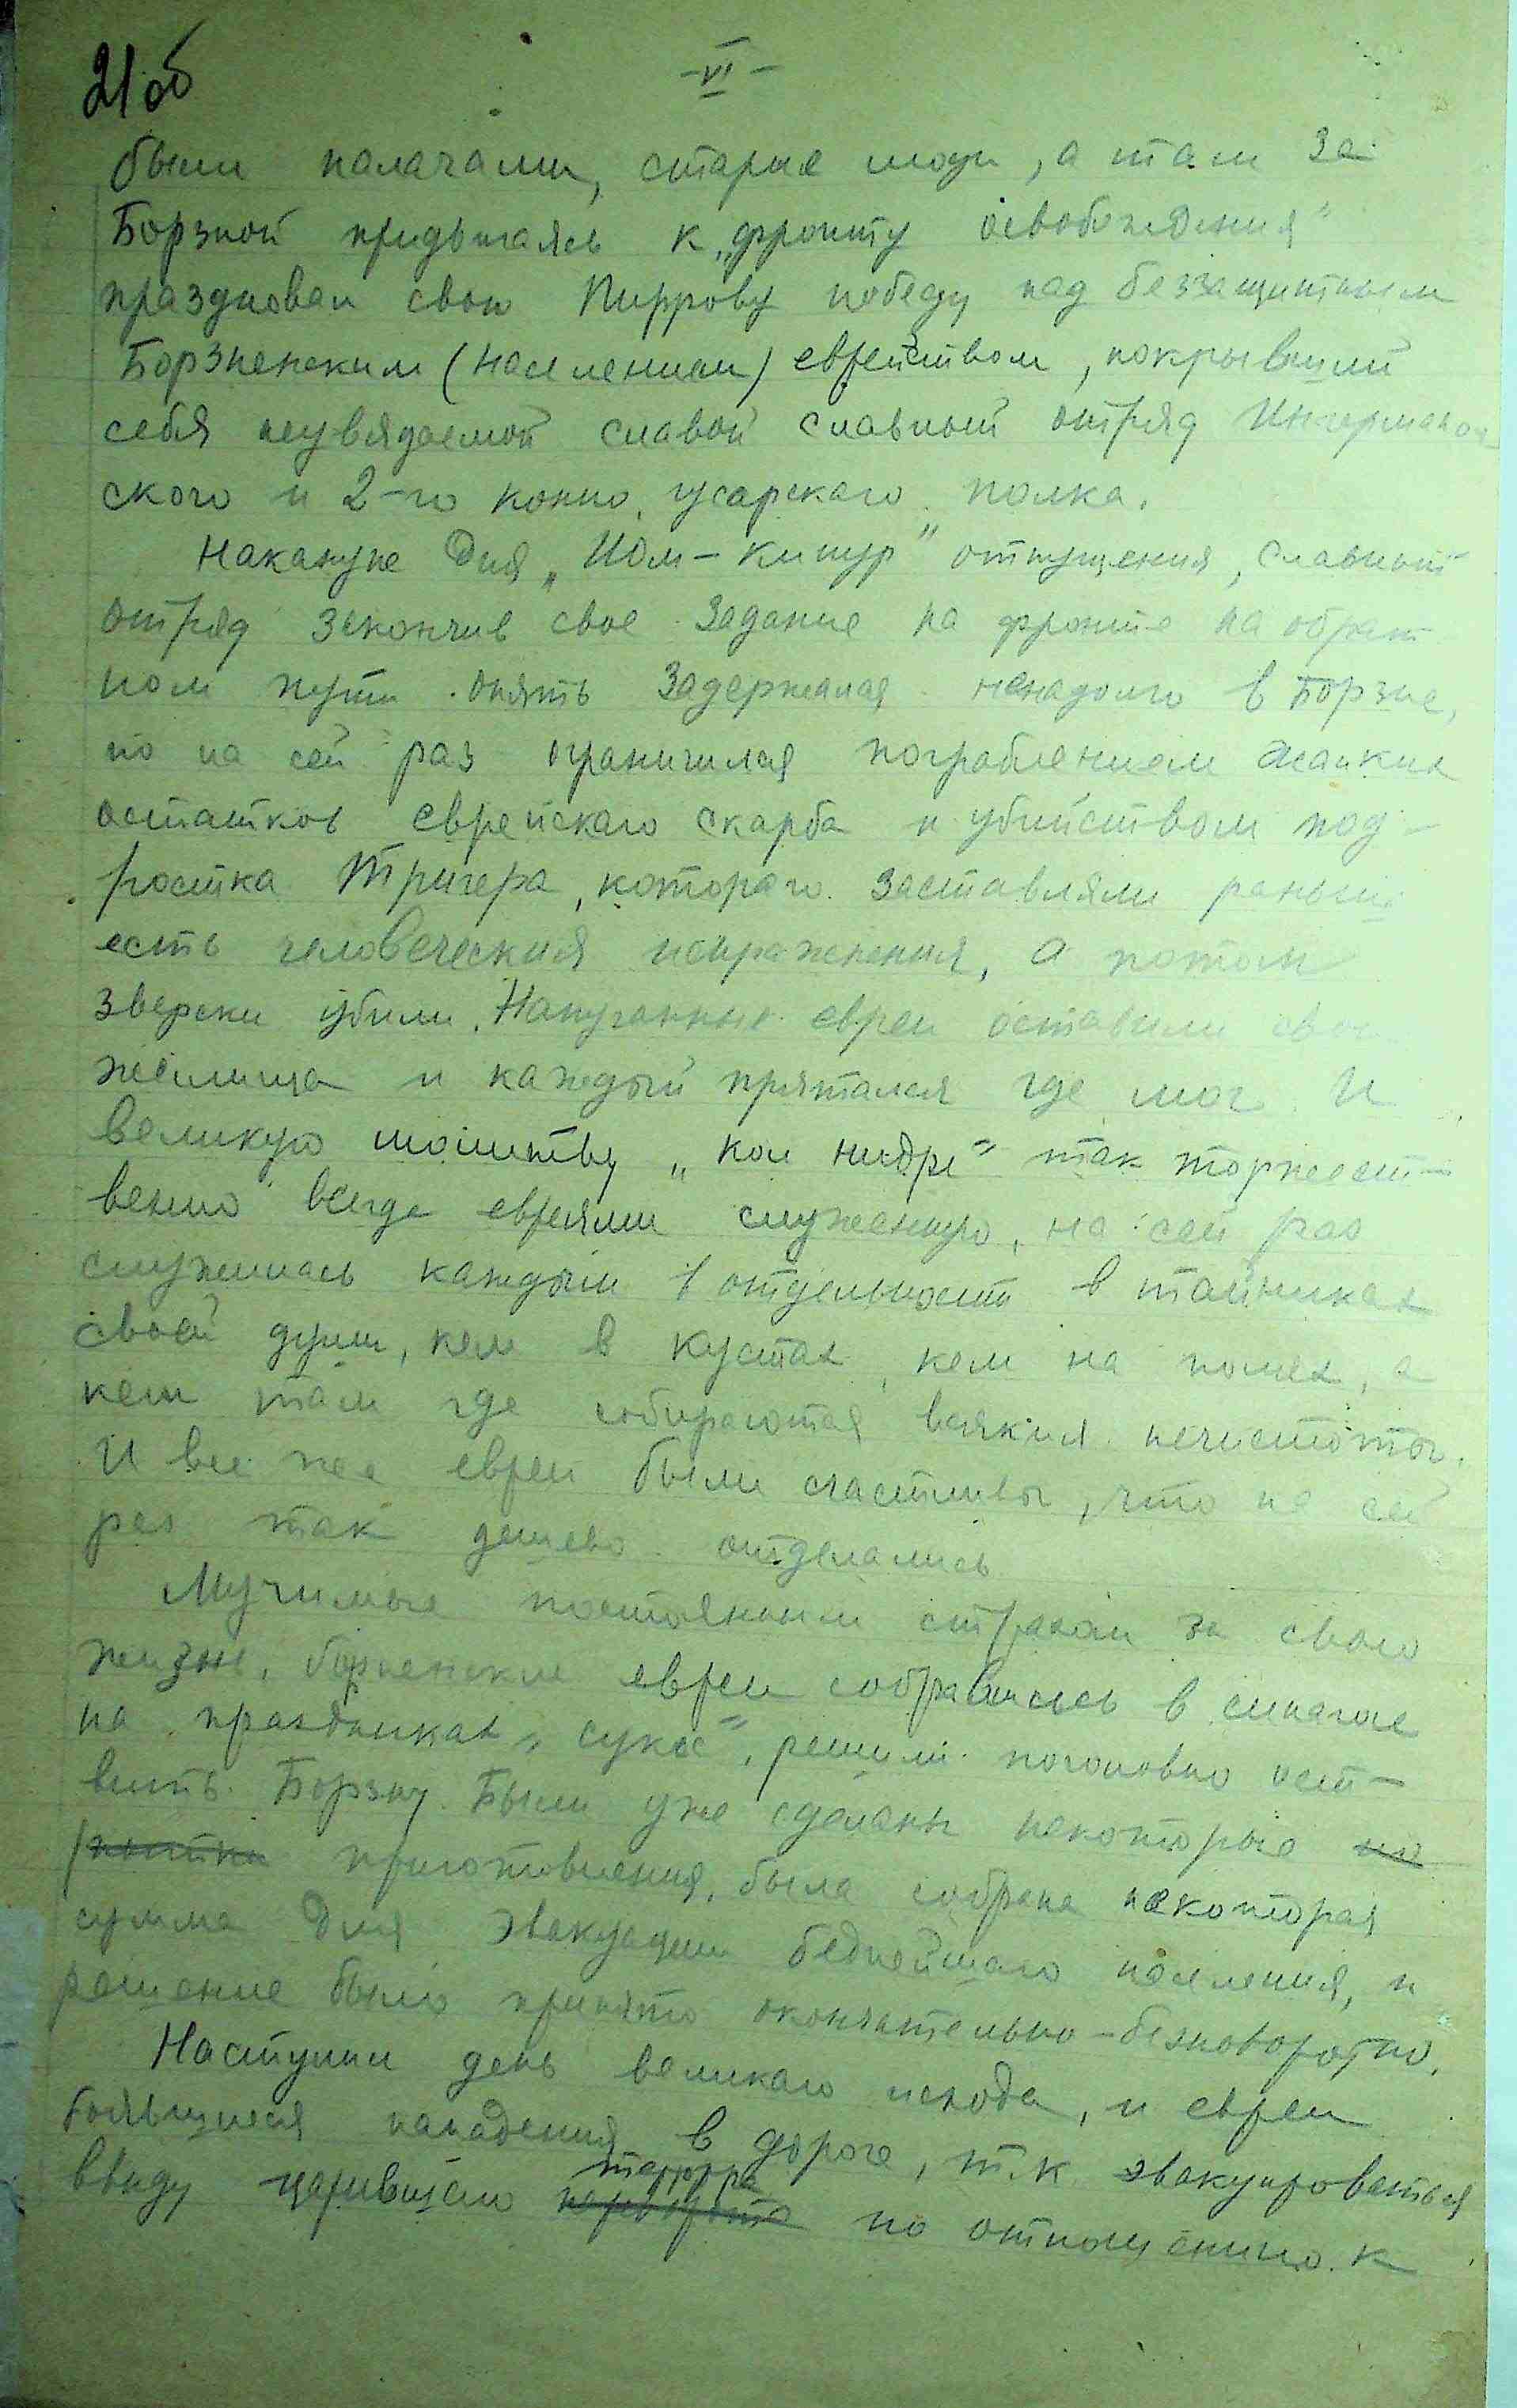 21 об
-VI-
были палачами, старые люди, а там за
Борзной придвигаясь к „фронту освобождения"
праздновал свою Пиррову победу над беззащитным
Борзненским (населением) еврейством, покрывший
себя неувядаемой славой славный отряд Ингерманланд-
ского и 2-го конно, гусарскаго полка.
Накануне Дня „Иом-Кипур" отпущения, славный
отряд закончив свое задание на фронте на обрат
ном пути опять задержался ненадолго в Борзне,
но на сей раз ограничился пограблением жалких
остатков еврейскаго скарба и убийством под-
ростка Тригера, котораго заставляли раньше
есть человеческия испражнения, а потом
зверски убили. Напуганные евреи оставили свои
жилища и каждый прятался где мог. И
великую молитву „Кол нидре" так торжест-
венно всегда евреями служенную, на сей раз
служилась каждым в отдельности в тайниках
своей души, кем в кустах, кем на полях, а
кем там где собираются всякия нечистоты.
И все же евреи были счастливы, что на сей
раз так дешево отделались
Мучимые постоянным страхом за свою
жизнь, борзенские евреи собравшись в синагоге
на праздниках „сукос", решили поголовно оста-
вить Борзну. Были уже сделаны некоторые по
приготовления, была собрана некоторая
сумма для эвакуации беднейшаго населения, и
решение было принято окончательно-безповоротно.
Наступил день великаго исхода, и евреи
боявшиеся нападения в дороге, т.к. эвакуироваться
ввиду царившаго террора по отношению к